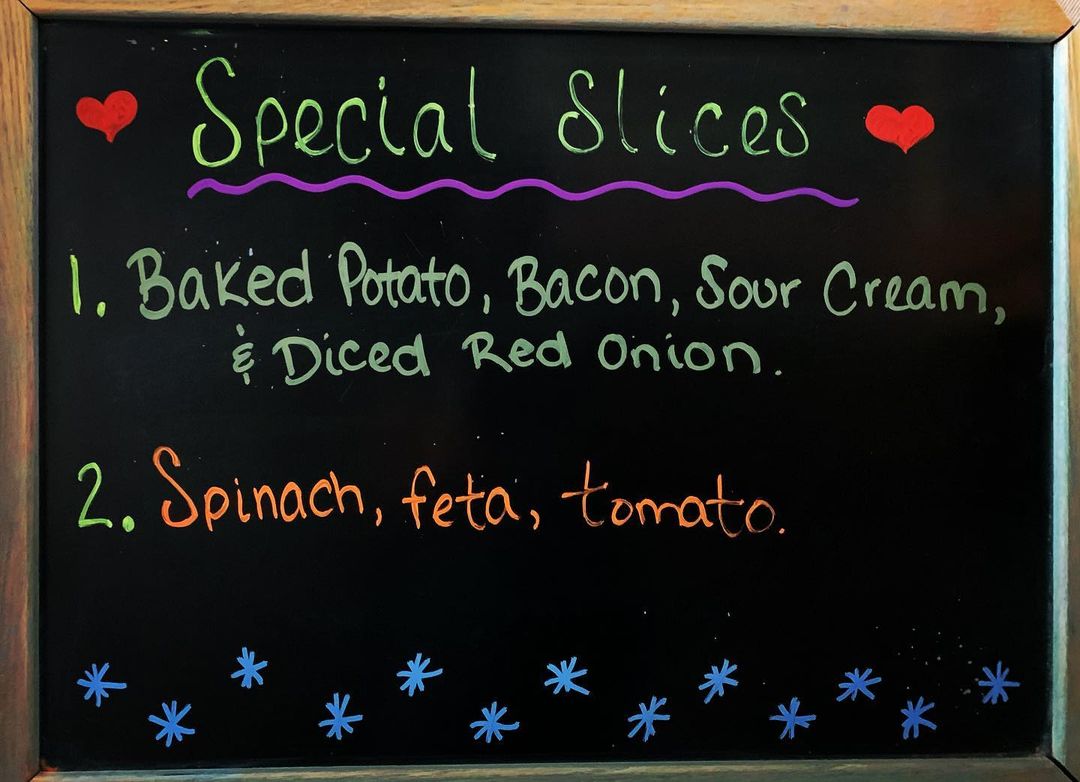 Special Slices
1. Baked Potato, Bacon, Sour Cream,
& Diced Red Onion.
2. Spinach, feta, tomato.